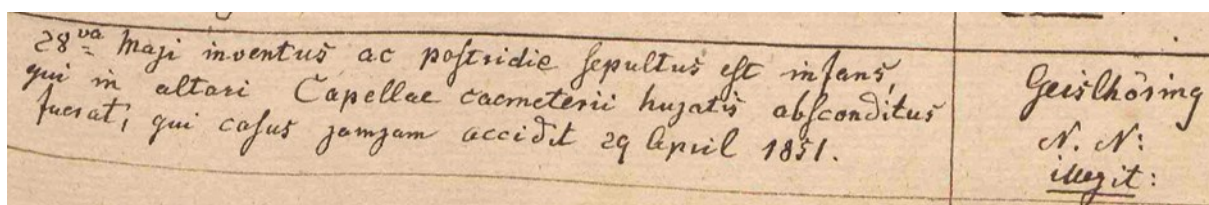 28va Maji inventus ac postridie sepultus est infans,
qui in altari Capellae caemeterii hujatis absconditus
fuerat; qui casus jamjam accidit 29 April 1851.
Geislhöring
N. N:
illegit: